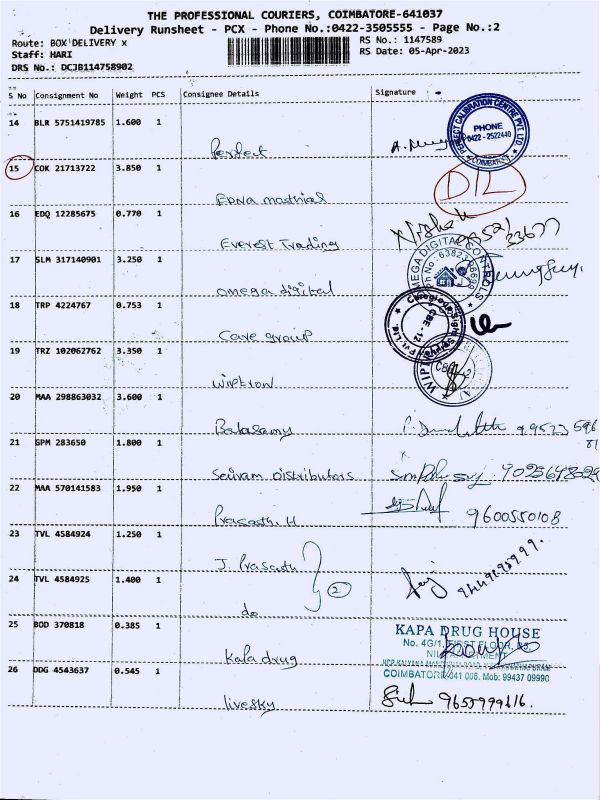 THE PROFESSIONAL COURIERS, COIMBATORE-641037
Delivery Runsheet - PCX - Phone No.:0422-3505555 - Page No.:2
Route: BOX DELIVERY x
RS No.: 1147589
Staff: HARI
RS Date: 05-Apr-2023
DRS No.: DCJB114758902
S No Consignment No Weight PCS Consignee Details Signature
14 BLR 5751419785 1.600 1
Perfect
PERFECT CALIBRATION CENTRE PVT LTD
PHONE
0422 - 2522440
COIMBATORE
15 COK 21713722 3.850 1
Edna mathial
DIL
16 EDQ 12285675 0.770 1
Everest Trading
17 SLM 317140901 3.250 1
omega digital
OMEGA DIGITAL CONTROLS
18 TRP 4224767 0.753 1
Care group
CBE - 12
19 TRZ 102062762 3.350 1
wiptron
20 MAA 298863032 3.600 1
Balasamy
21 GPM 283650 1.800 1
distributors
22 MAA 570141583 1.950 1
Prasath. H
9600550108
23 TVL 4584924 1.250 1
J. Prasath
2
24 TVL 4584925 1.400 1
do
25 BDD 370818 0.385 1
Kala drug
KAPA DRUG HOUSE
No. 4G/1, FIRST FLOOR,
COIMBATORE-641 008. Mob: 99437 09990
26 DDG 4543637 0.545 1
livesky